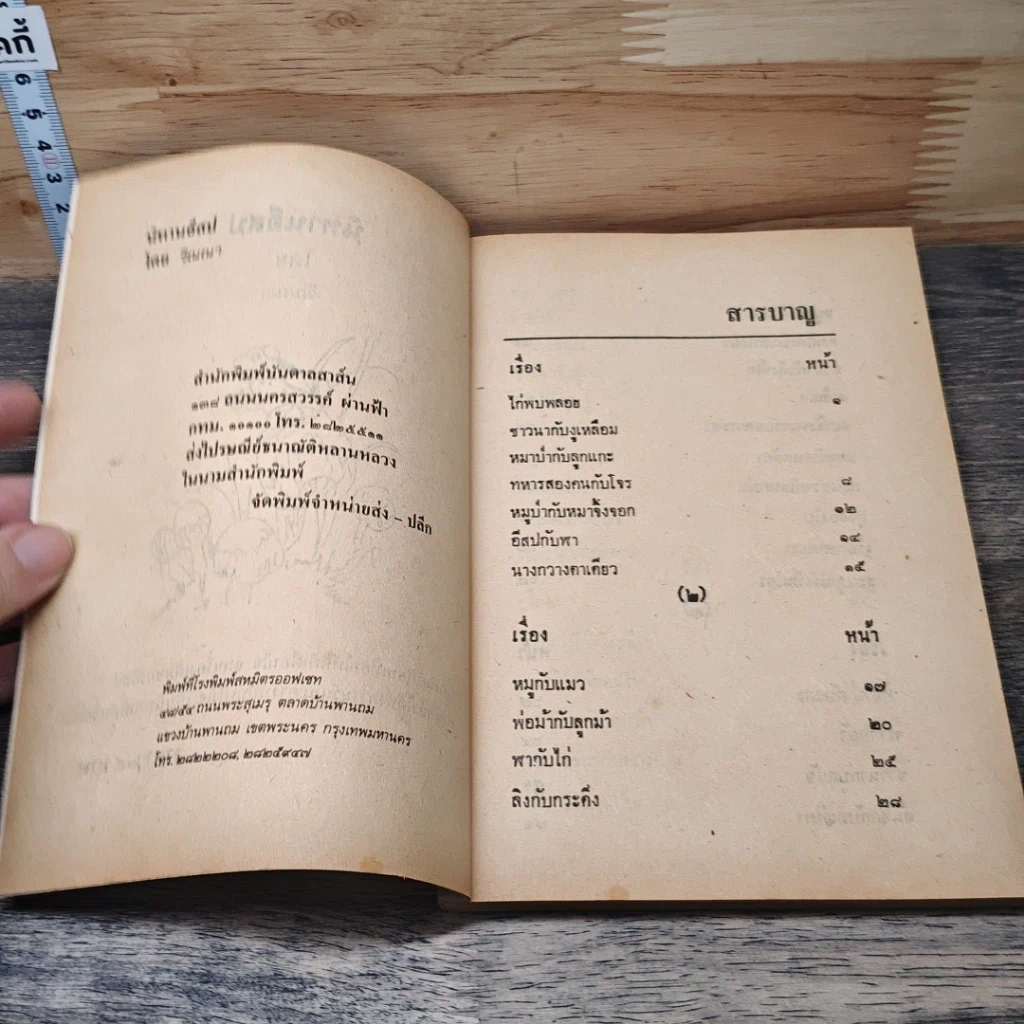 นิทานอีสป
โดย
สำนักพิมพ์บันดาลสาส์น
๑๓๘ ถนนนครสวรรค์ ผ่านฟ้า
กทม. ๑๐๑๐๐ โทร. ๒๘๒๕๕๑๑
ส่งไปรษณีย์ธนาณัติหลานหลวง
ในนามสำนักพิมพ์
จัดพิมพ์จำหน่ายส่ง – ปลีก
พิมพ์ที่โรงพิมพ์สหมิตรออฟเซท
ถนนพระสุเมรุ ตลาดบ้านพานถม
แขวงบ้านพานถม เขตพระนคร กรุงเทพมหานคร
โทร. ๒๘๒๒๒๐๘, ๒๘๒๕๙๔๗
สารบาญ
เรื่อง หน้า
ไก่พบพลอย ๑
ชาวนากับงูเหลือม
หมาป่ากับลูกแกะ
ทหารสองคนกับโจร ๘
หมูป่ากับหมาจิ้งจอก ๑๒
อีสปกับพา ๑๔
นางกวางตาเดียว ๑๕
(๒)
เรื่อง หน้า
หมูกับแมว ๑๗
พ่อม้ากับลูกม้า ๒๐
พากับไก่ ๒๕
ลิงกับกระดิ่ง ๒๘
6
5
4
3
2